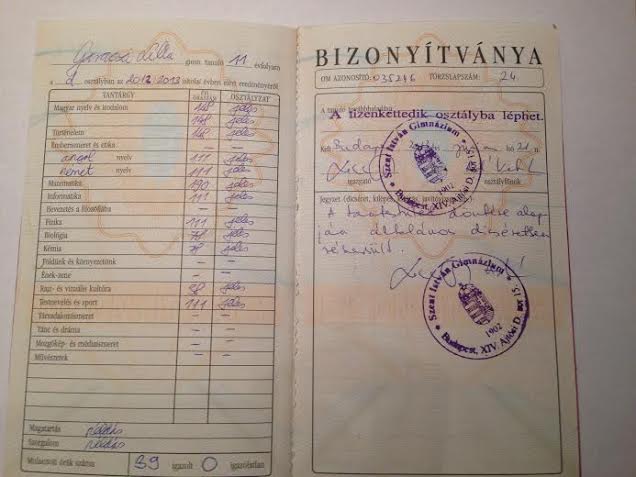 Lilla gimn. tanuló 11 évfolyam
a d osztályban az 2012/2013 iskolai évben elért eredményeiről
TANTÁRGY ÉVI ÓRASZÁM OSZTÁLYZAT
Magyar nyelv és irodalom 148 jeles
148 jeles
Történelem 148 jeles
Emberismeret és etika – –
angol nyelv 111 jeles
német nyelv 111 jeles
Matematika 190 jeles
Informatika 111 jeles
Bevezetés a filozófiába – –
Fizika 111 jeles
Biológia 78 jeles
Kémia 78 jeles
Földünk és környezetünk – –
Ének-zene – –
Rajz- és vizuális kultúra 38 jeles
Testnevelés és sport 111 jeles
Társadalomismeret – –
Tánc és dráma – –
Mozgókép- és médiaismeret – –
Művészetek – –
Magatartás példás
Szorgalom példás
Mulasztott órák száma 39 igazolt 0 igazolatlan
BIZONYÍTVÁNYA
OM AZONOSÍTÓ: 035246 TÖRZSLAPSZÁM: 24
A tanuló
A tizenkettedik osztályba léphet.
Budapest hó 21 n.
igazgató osztályfőnök
Szent István Gimnázium
1902
Budapest, XIV. Ajtósi D. sor 15.
Jegyzet
A tantestület döntése alap
ján általános dicséretben
részesült.
Szent István Gimnázium
1902
Budapest, XIV. Ajtósi D. sor 15.